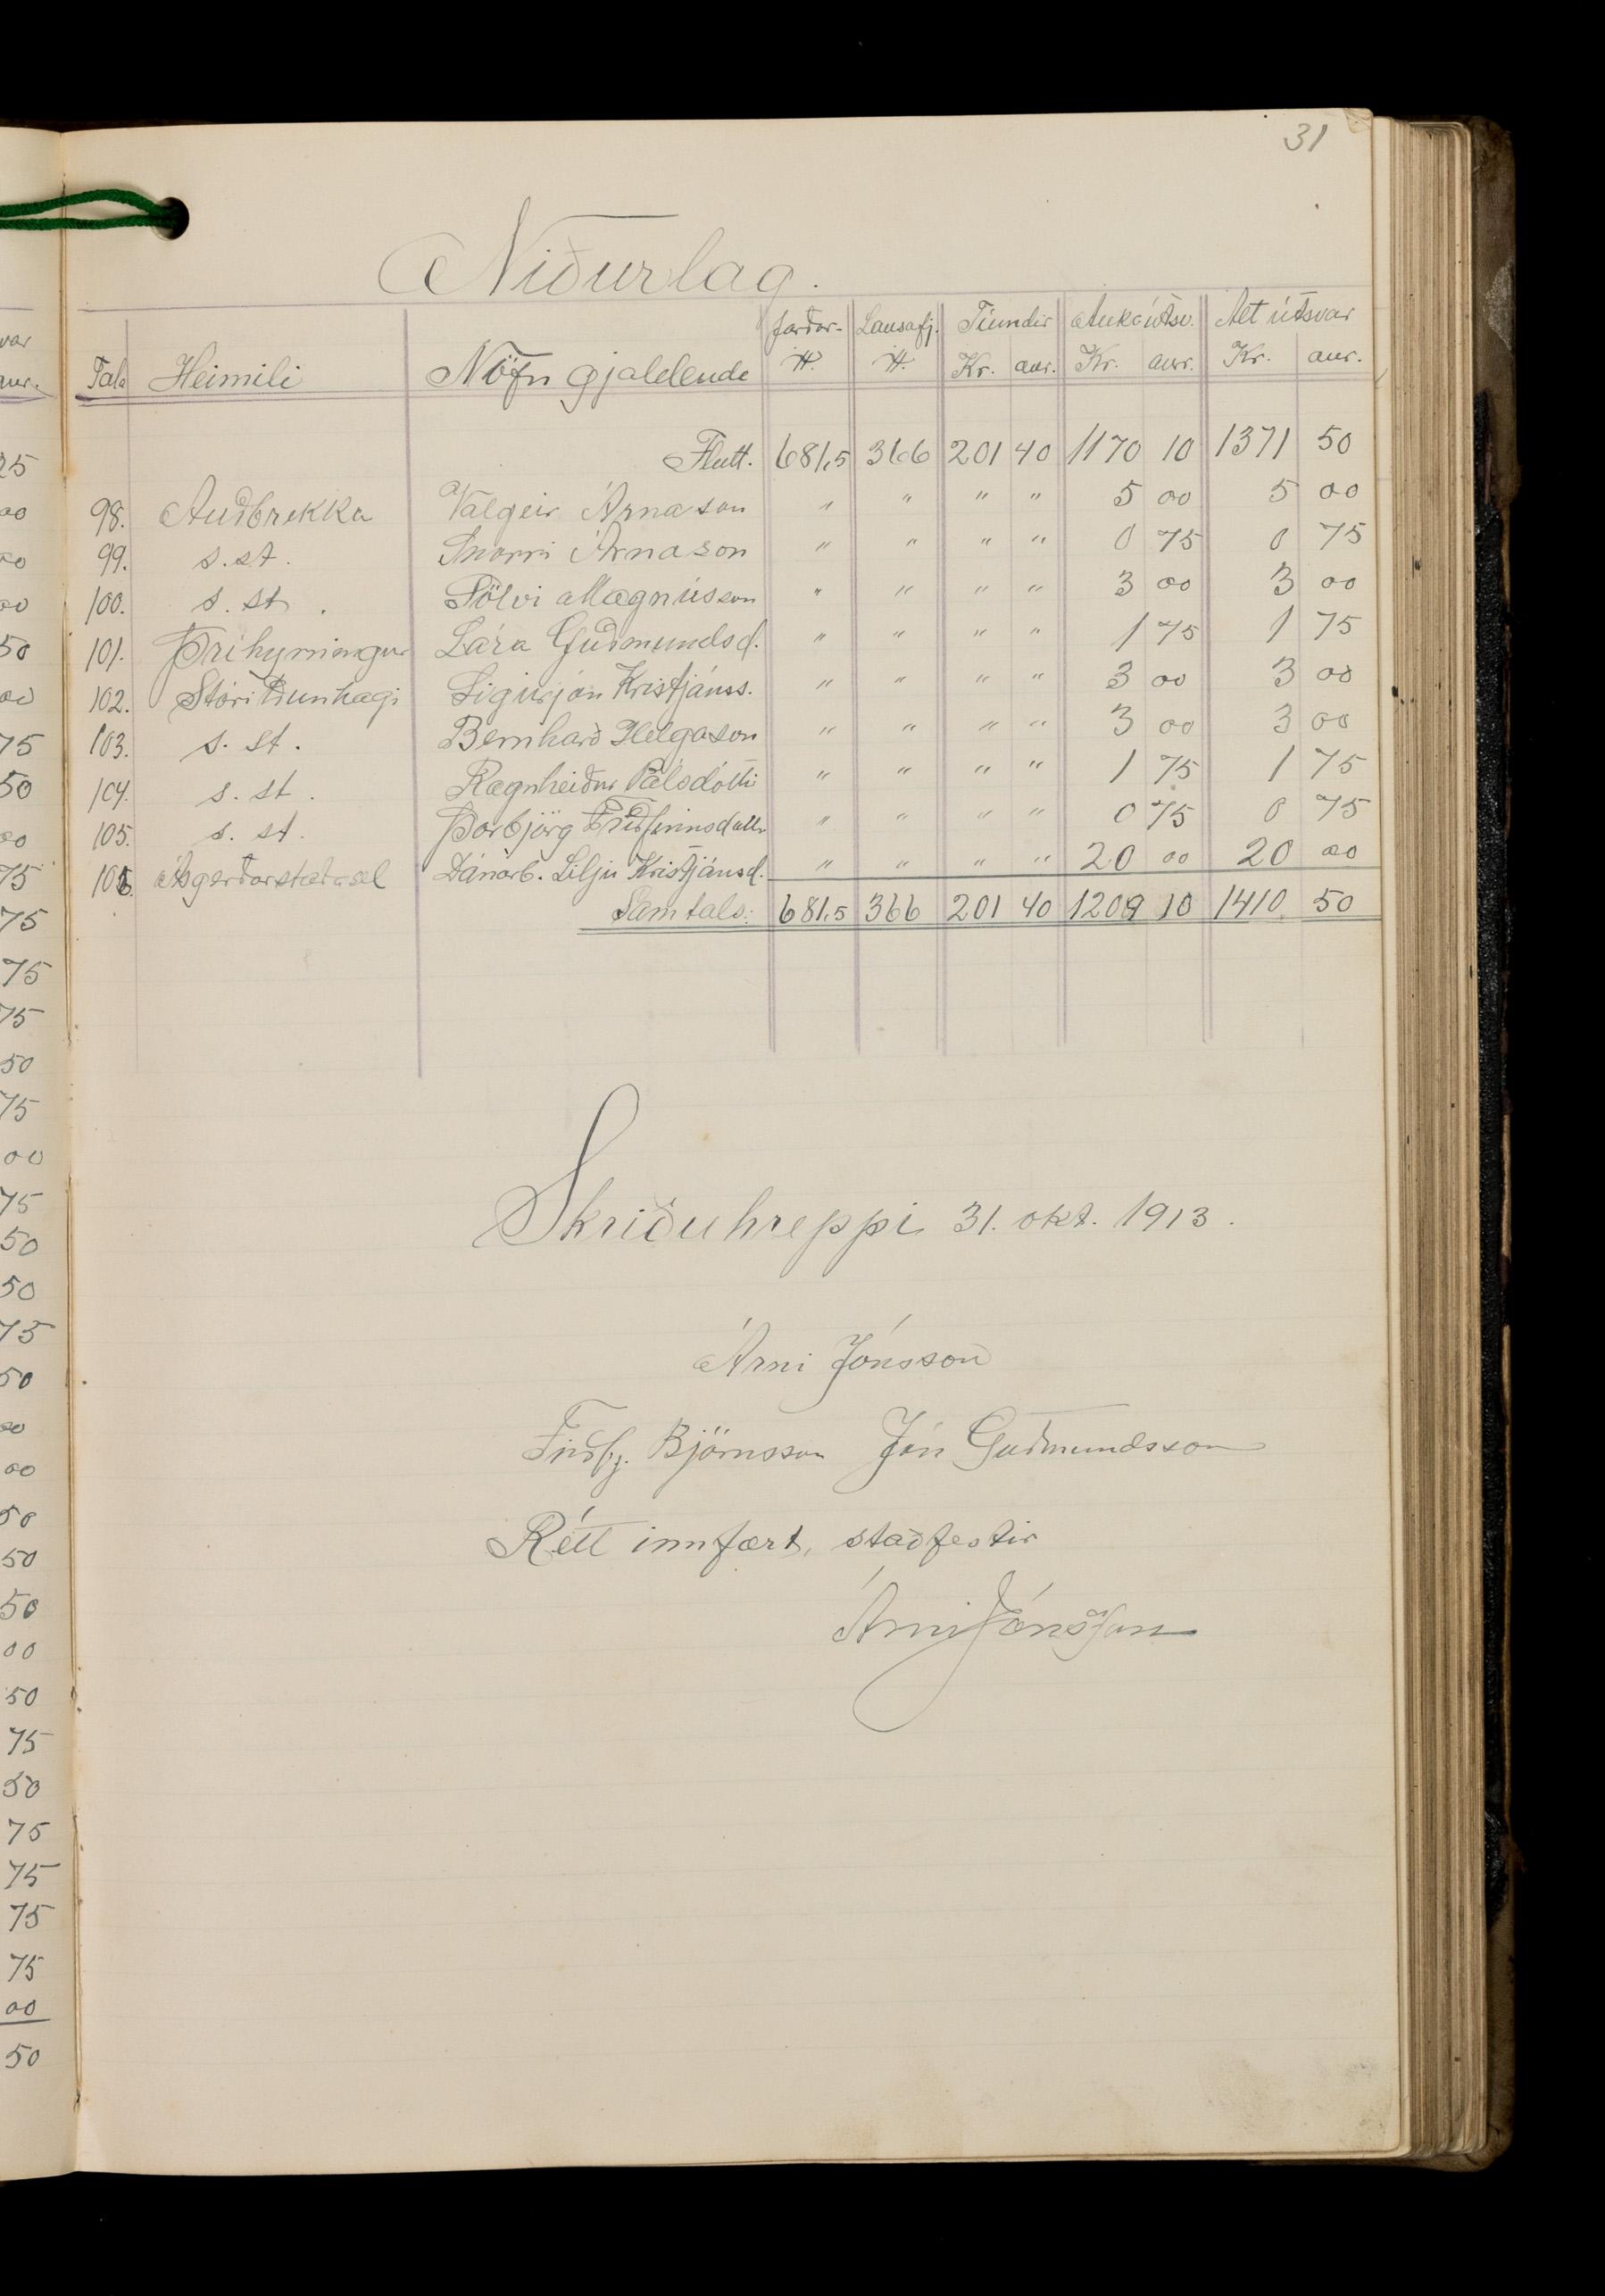 31
Niðurlag.
Tala Heimili Nöfn gjaldenda Jarðar- H. Lausafj. H. Tíundir Kr. aur. Aukaútsv. Kr. aur. Alt útsvar Kr. aur.
Flutt. 681,5 366 201 40 1170 10 1371 50
98. Auðbrekka Valgeir Árnason " " " " 5 00 5 00
99. s. st. Snorri Árnason " " " " 0 75 0 75
100. s. st. Sölvi Magnússon " " " " 3 00 3 00
101. Þríhyrningur Lára Guðmundsd. " " " " 1 75 1 75
102. Stóri Dunhagi Sigurjón Kristjánss. " " " " 3 00 3 00
103. s. st. Bernharð Helgason " " " " 3 00 3 00
104. s. st. Ragnheiður Pálsdóttir " " " " 1 75 1 75
105. s. st. Þorbjörg Friðfinnsdóttir " " " " 0 75 0 75
106. Ásgerðarstaðasel Dánarb. Lilju Kristjánsd. " " " " 20 00 20 00
Samtals: 681,5 366 201 40 1209 10 1410 50
Skriðuhreppi 31. okt. 1913.
Árni Jónsson
Friðbj. Björnsson Jón Guðmundsson
Rétt innfært, staðfestir
Árni Jónsson